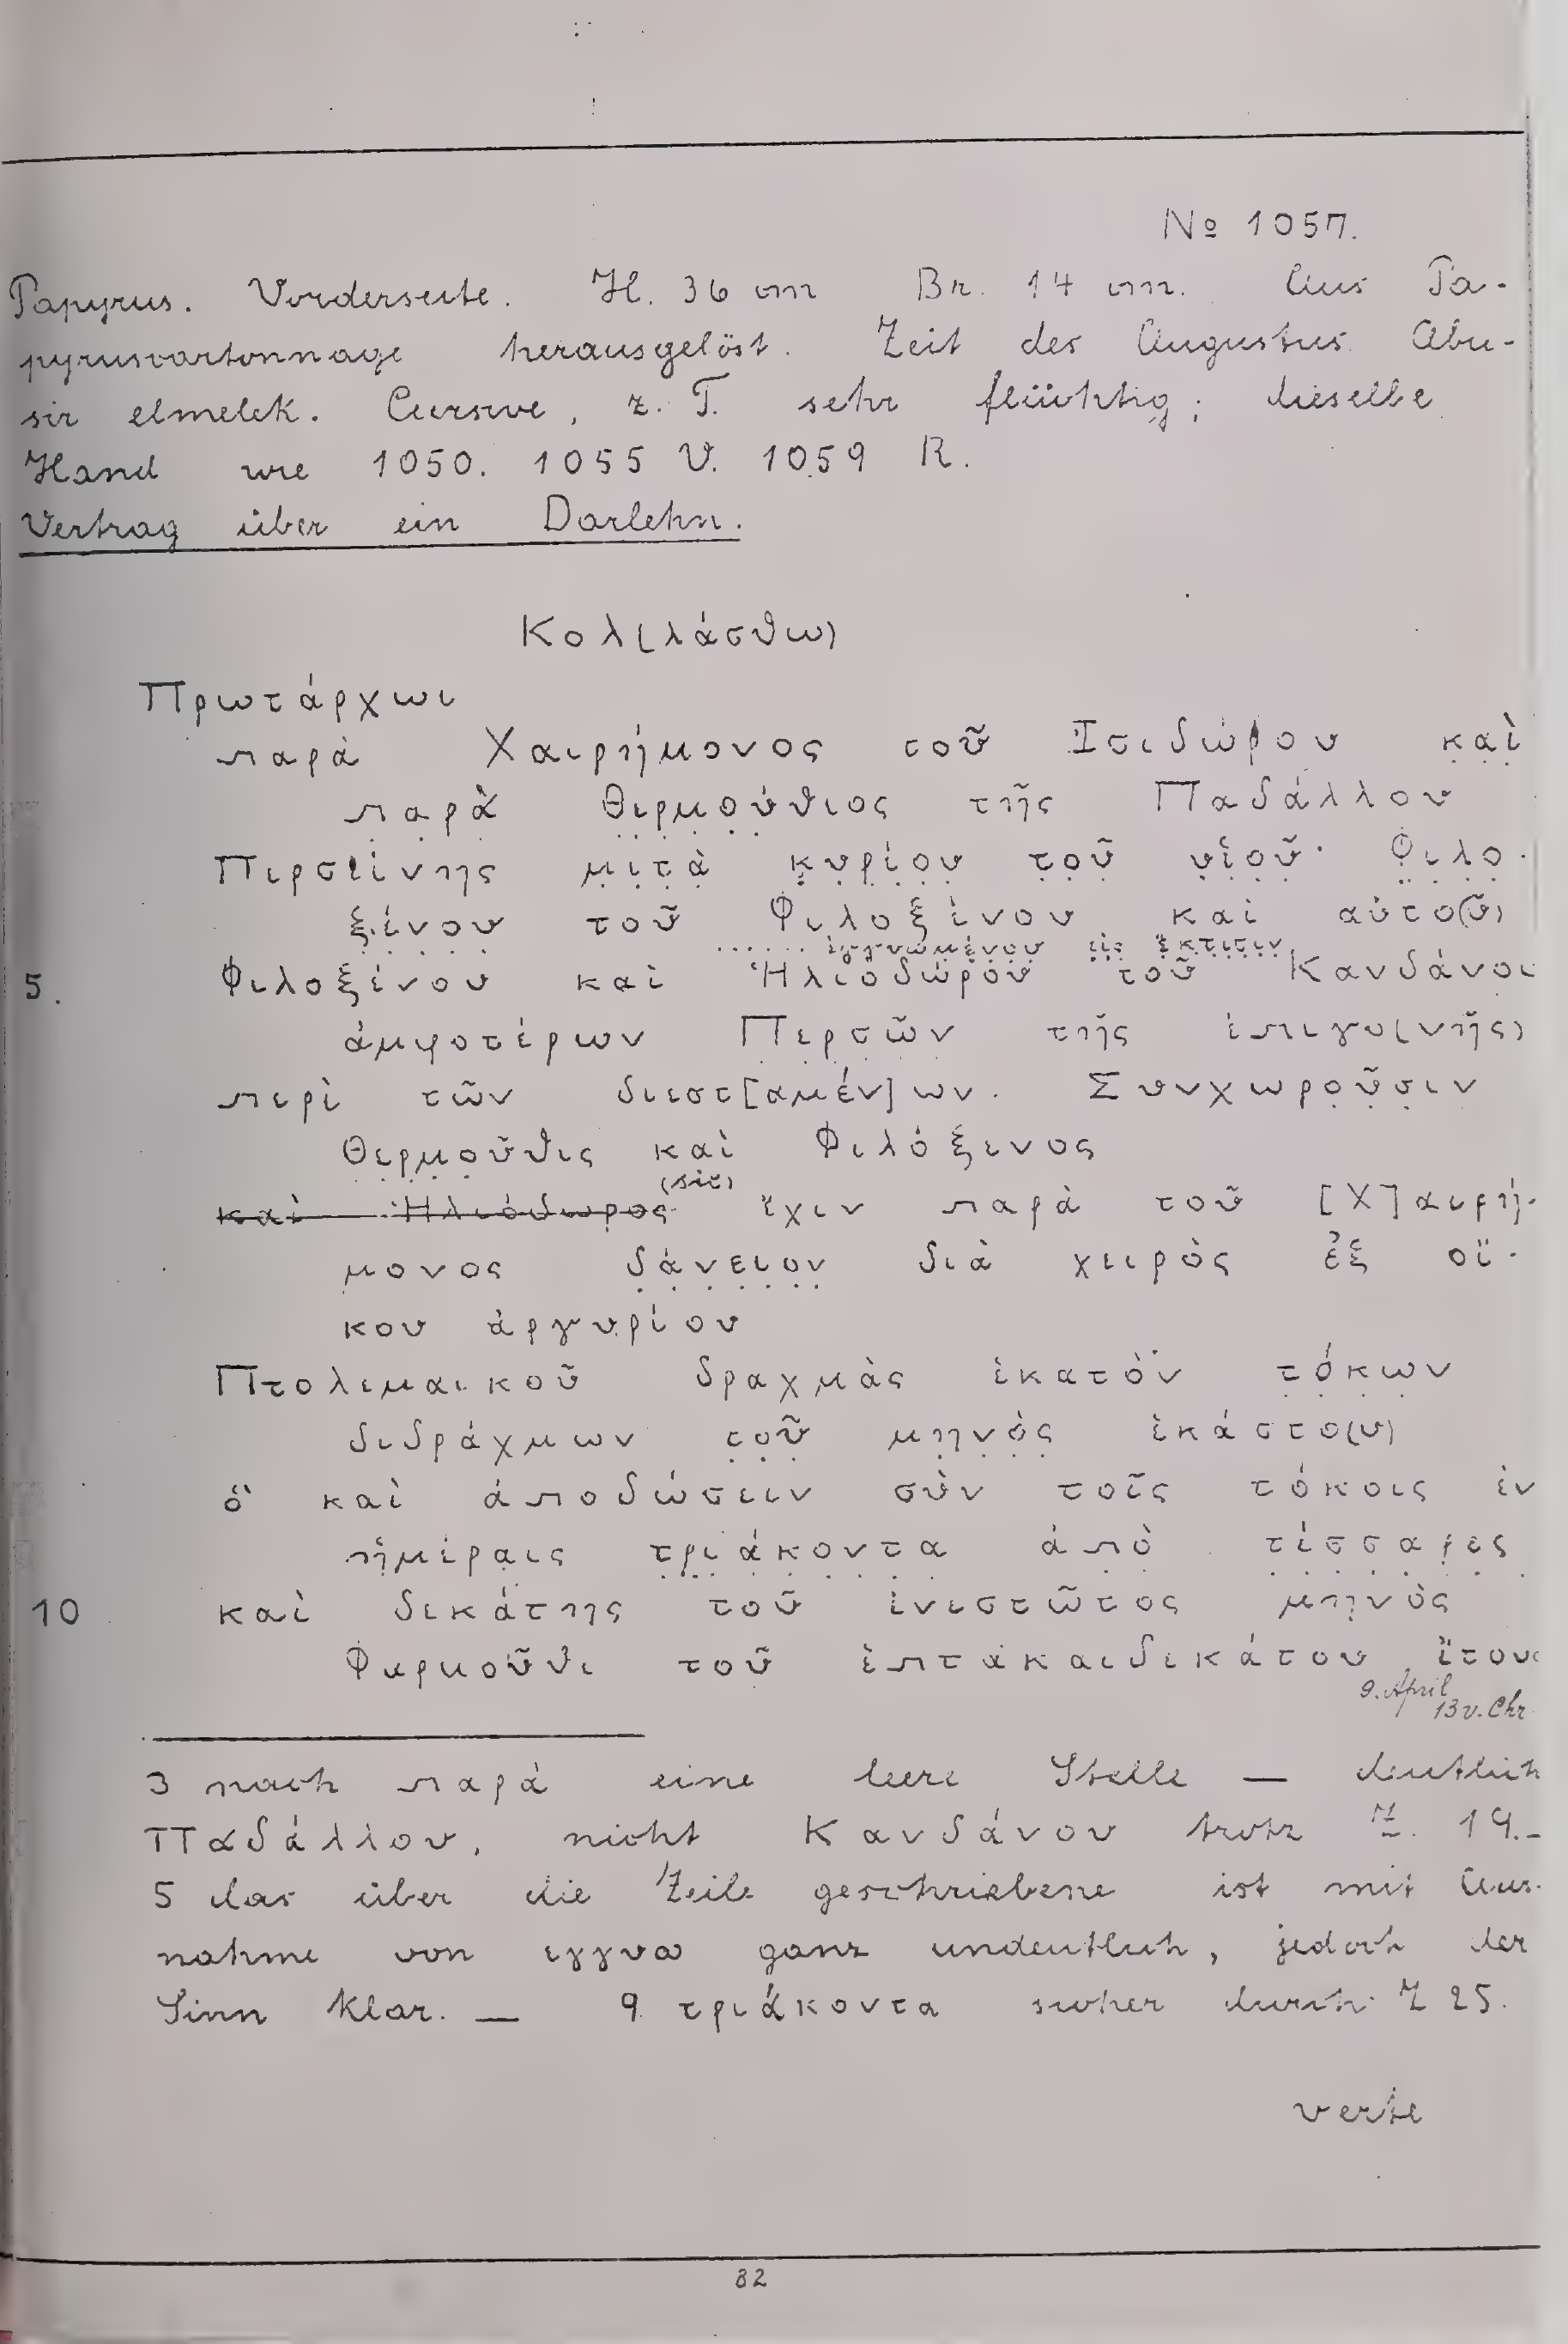 No 1057.
Papyrus. Vorderseite. H. 36 cm Br. 14 cm. Aus Pa-
pyruscartonnage herausgelöst. Zeit des Augustus. Abu-
sir elmelek. Cursive, z. T. sehr flüchtig; dieselbe
Hand wie 1050. 1055 V. 1059 R.
Vertrag über ein Darlehn.
Κολ(λάσθω)
Πρωτάρχωι
παρὰ Χαιρήμονος τοῦ Ἰσιδώρου κα̣ὶ̣
πα̣ρ̣ὰ̣ Θε̣ρ̣μ̣ο̣ύ̣θιος τῆς Παδάλλου
Περσείνης μ̣ε̣τ̣ὰ̣ κ̣υ̣ρ̣ί̣ο̣υ̣ τ̣ο̣ῦ̣ υ̣ἱ̣ο̣ῦ̣ Φ̣ι̣λ̣ο̣-
ξ̣έ̣ν̣ο̣υ̣ τοῦ Φιλοξένου καὶ αὐτο(ῦ)
...... ἐ̣γ̣γ̣υ̣ω̣μ̣έ̣ν̣ο̣υ̣ ε̣ἰ̣ς̣ ἔ̣κ̣τ̣ι̣σ̣ι̣ν̣
5. Φιλοξένου καὶ Ἡλιοδώρου τοῦ Κανδάνου
ἀμφοτέρων Περσῶν τῆς ἐπιγο(νῆς)
περὶ τῶν διεστ[αμέν]ων. Συνχωρο̣ῦ̣σ̣ιν
Θερμ̣ο̣ῦ̣θ̣ις καὶ Φιλόξενος
καὶ Ἡλιόδωρος (sic) ἔχιν παρὰ τοῦ [Χ]αιρή-
μονος δ̣ά̣ν̣ε̣ι̣ο̣ν̣ διὰ χειρὸς ἐξ οἴ-
κου ἀργυρίου
Πτολεμαικοῦ δραχμὰς ἑκατὸν τό̣κ̣ω̣ν
διδράχμων τ̣ο̣ῦ̣ μ̣η̣ν̣ὸ̣ς̣ ἑκάστο(υ)
ὃ καὶ ἀποδώσειν σὺν τοῖς τόκοις ἐν
ἡμέρα̣ις τ̣ρ̣ι̣ά̣κ̣ο̣ν̣τ̣α̣ ἀπὸ τ̣έ̣σ̣σ̣α̣ρ̣ε̣ς̣
10 καὶ δεκάτης τοῦ ἐνεστῶτος μηνὸς
Φαρμοῦθι τοῦ ἑπτακαιδεκάτου ἔτους
9. April
13 v. Chr
3 nach παρὰ eine leere Stelle — deutlich
Παδάλλου, nicht Κανδάνου trotz N. 19.–
5 das über die Zeile geschriebene ist mit Aus-
nahme von εγγυω ganz undeutlich, jedoch der
Sinn klar. — 9 τριάκοντα sicher durch Z 25.
verte
82